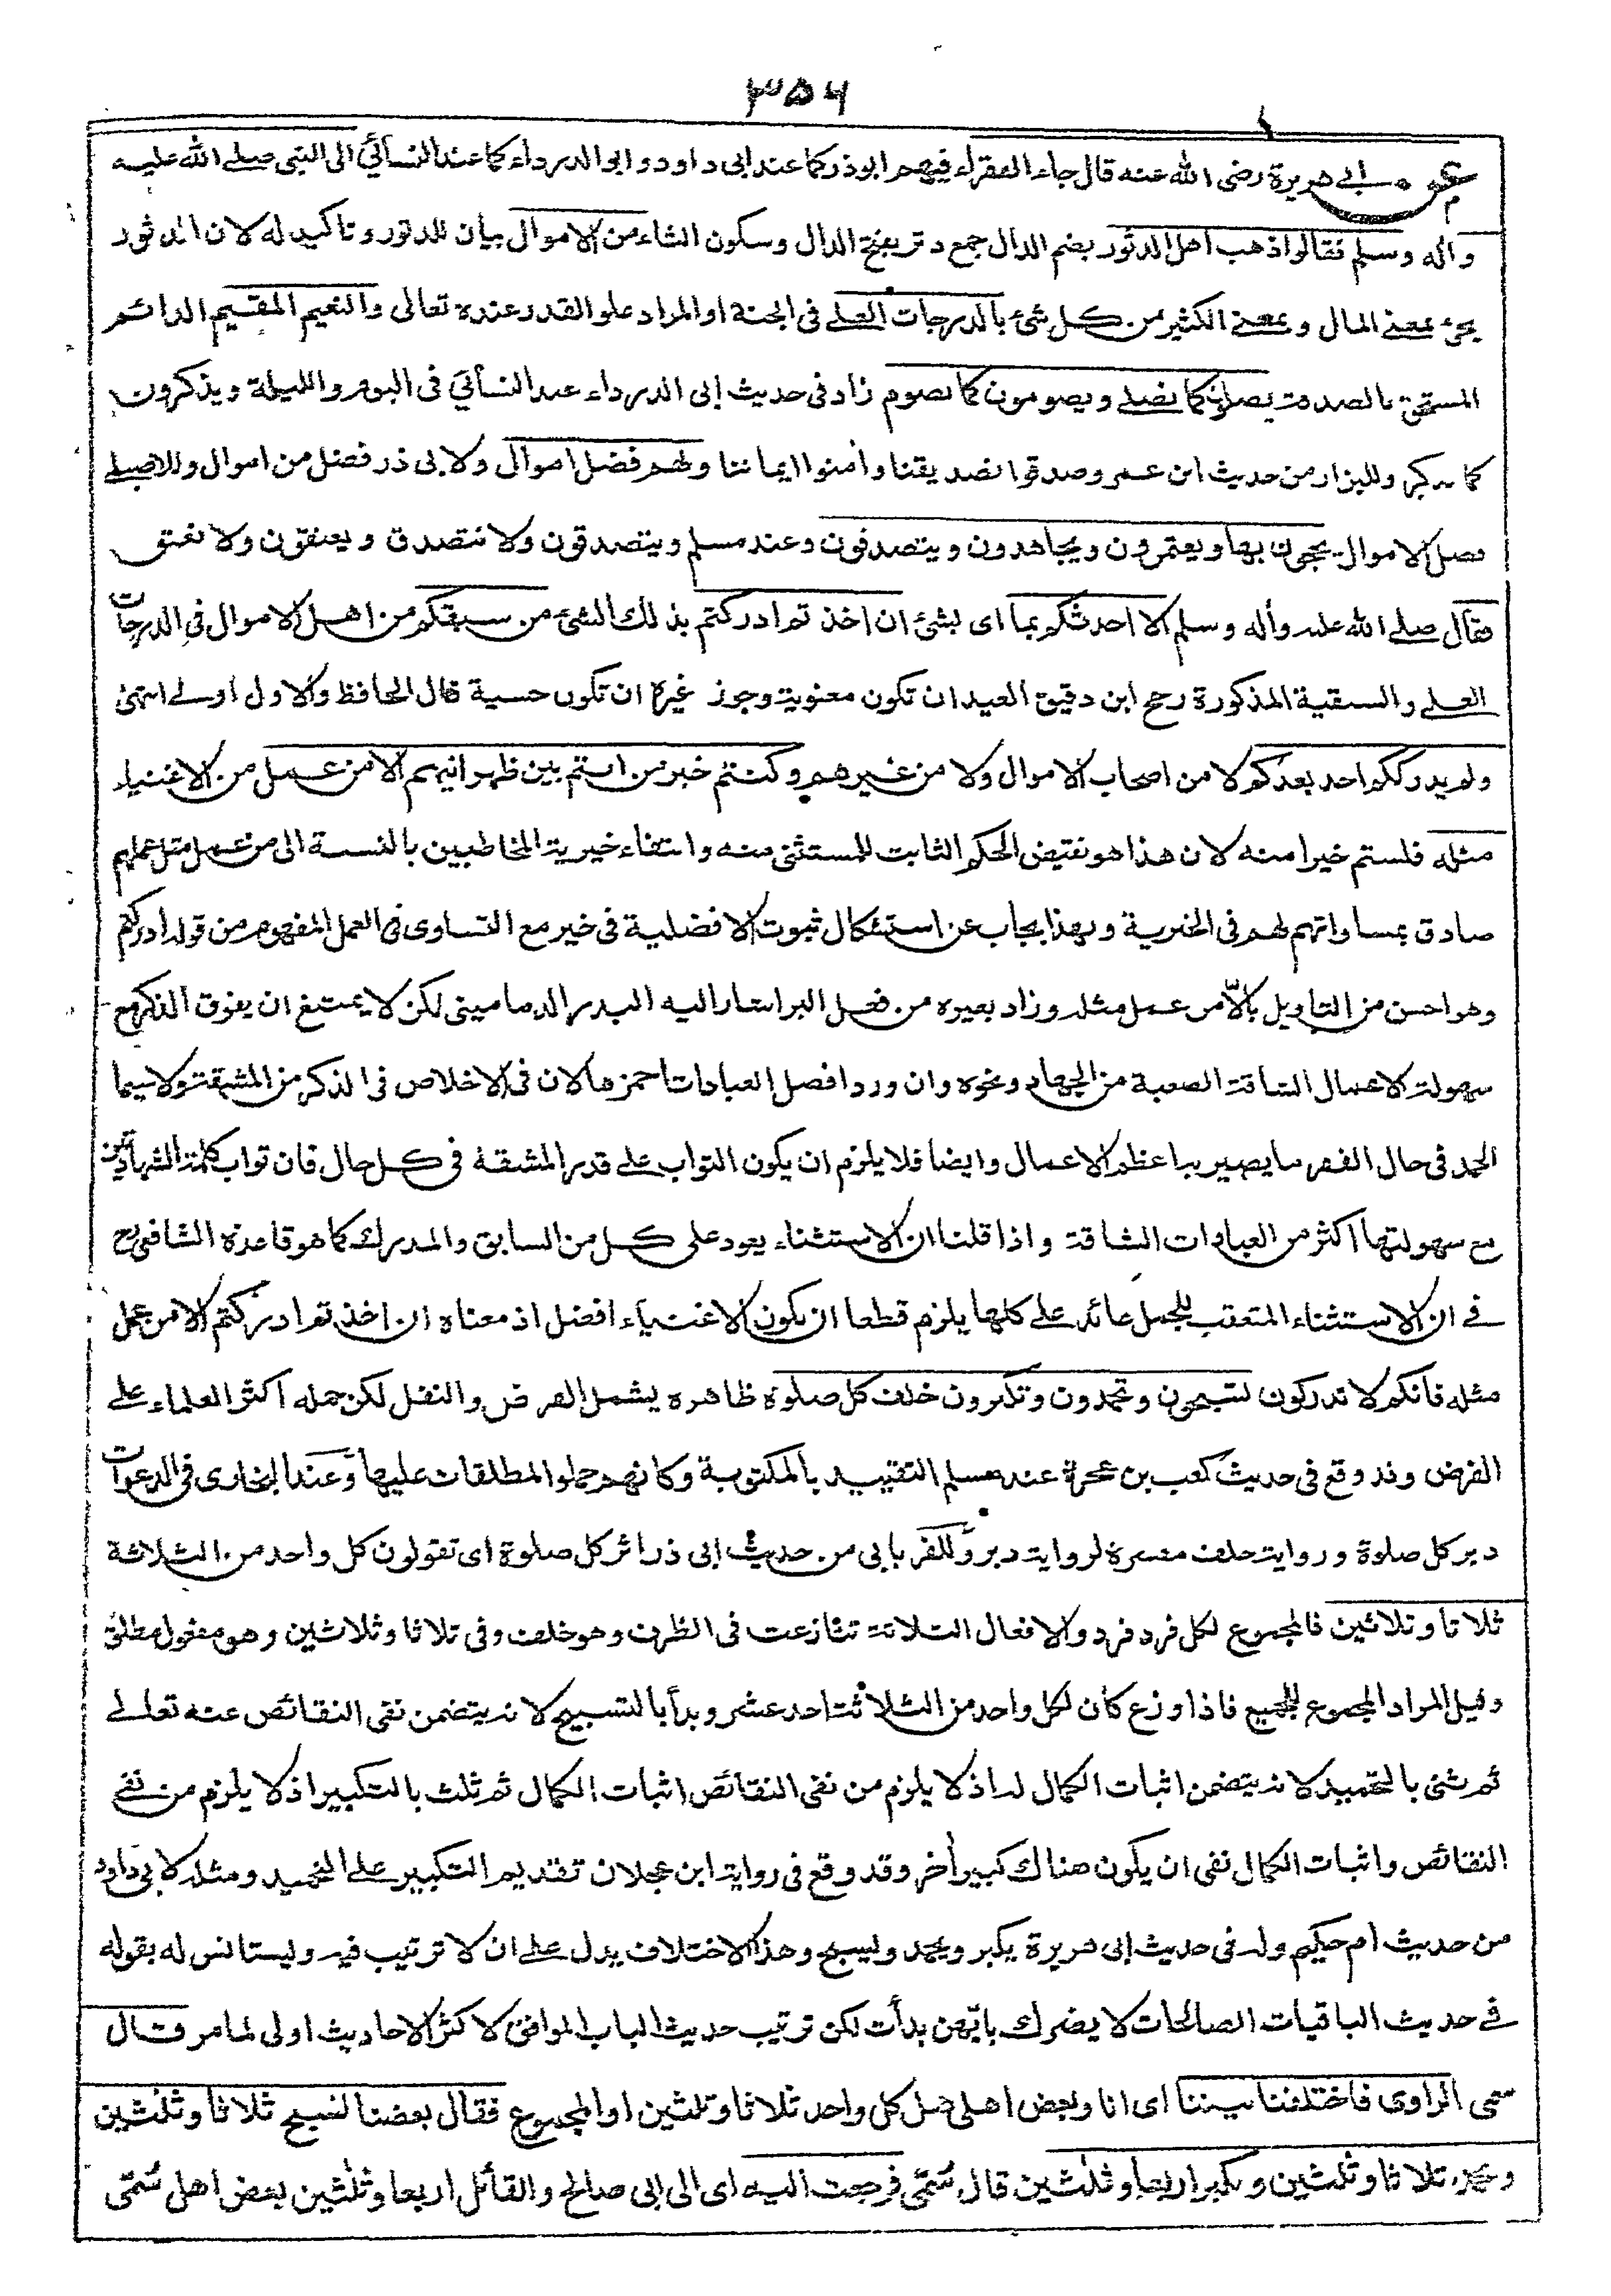 ۳۵۶
عن ابي هريرة رضى الله عنه قال جاء الفقراء فيهم ابوذر كما عند ابى داود و ابو الدرداء كما عند النسائي الى النبى صلے الله عليه
واٰله وسلم فقالوا ذهب اهل الدثور بضم الدال جمع دثر بفتح الدال وسكون الثاء من الاموال بيان للدثور وتاكيد له لان الدثور
يجئ بمعنى المال و بمعنى الكثير من كل شئ بالدرجات العلے فى الجنة او المراد علو القدر عنده تعالى والنعيم المقيم الدائم
المستحق بالصدقة يصلون كما نصلے ويصومون كما نصوم زاد فى حديث ابى الدرداء عند النسائي فى اليوم والليلة ويذكرون
كما نذكر وللبزار من حديث ابن عمر وصدقوا تصديقنا واٰمنوا ايماننا ولهم فضل اموال ولابى ذر فضل من اموال وللاصيلے
فضل الاموال يحجون بها ويعتمرون ويجاهدون ويتصدقون وعند مسلم ويتصدقون ولا نتصدق ويعتقون ولا نعتق
فقال صلے الله عليه واٰله وسلم الا احدثكم بما اى بشئ ان اخذتم ادركتم بذلك الشئ من سبقكم من اهل الاموال فى الدرجات
العلے والسبقية المذكورة رجح ابن دقيق العيد ان تكون معنوية وجوز غيره ان تكون حسية قال الحافظ والاول اولے انتهى
ولم يدرككم احد بعدكم لا من اصحاب الاموال ولا من غيرهم وكنتم خير من انتم بين ظهرانيهم الا من عمل من الاغنياء
مثله فلستم خيرا منه لان هذا هو نقيض الحكم الثابت للمستثنى منه وانتفاء خيرية المخاطبين بالنسبة الى من عمل مثل عملهم
صادق بمساواتهم لهم فى الخيرية وبهذا يجاب عن استشكال ثبوت الافضلية فى خير مع التساوى فى العمل المفهوم من قوله ادركتم
وهو احسن من التاويل بالّا من عمل مثله وزاد بغيره من فعل البر اشار اليه البدر الدمامينى لكن لا يمتنع ان يفوق الذكر مع
سهولة الاعمال الشاقة الصعبة من الجهاد ونحوه وان ورد افضل العبادات احمزها لان فى الاخلاص فى الذكر من المشقة ولا سيما
الحمد فى حال الفقر ما يصير به اعظم الاعمال وايضا فلا يلزم ان يكون الثواب علے قدر المشقة فى كل حال فان ثواب كلمة الشهادتين
مع سهولتها اكثر من العبادات الشاقة واذا قلنا ان الاستثناء يعود على كل من السابق والمدرك كما هو قاعدة الشافعى رح
فے ان الاستثناء المتعقب للجمل عائد علے كلها يلزم قطعا ان يكون الاغنياء افضل اذ معناه ان اخذتم ادركتم الا من عمل
مثله فانكم لا تدركون تسبحون وتحمدون وتكبرون خلف كل صلوة ظاهره يشمل الفرض والنفل لكن حمله اكثر العلماء علے
الفرض وقد وقع فى حديث كعب بن عجرة عند مسلم التقييد بالمكتوبة وكانهم حملوا المطلقات عليها وعند البخارى فى الدعوات
دبر كل صلوة ورواية خلف مفسرة لرواية دبر وللفريابى من حديث ابى ذر اثر كل صلوة اى تقولون كل واحد من الثلاثة
ثلاثا وثلاثين فالمجموع لكل فرد فرد والافعال الثلاثة تنازعت فى الظرف وهو خلف وفى ثلاثا وثلاثين وهو مفعول مطلق
وقيل المراد المجموع للجميع فاذا وزع كان لكل واحد من الثلاثة احد عشر وبدأ بالتسبيح لانه يتضمن نفى النقائص عنه تعالے
ثم ثنى بالتحميد لانه يتضمن اثبات الكمال له اذ لا يلزم من نفى النقائص اثبات الكمال ثم ثلث بالتكبير اذ لا يلزم من نفے
النقائص واثبات الكمال نفى ان يكون هناك كبير اٰخر وقد وقع فى رواية ابن عجلان تقديم التكبير علے التحميد ومثله لابى داود
من حديث ام حكيم وله فى حديث ابى هريرة يكبر ويحمد ويسبح وهذا الاختلاف يدل علے ان لا ترتيب فيه وليستانس له بقوله
فے حديث الباقيات الصالحات لا يضرك بايّهن بدأت لكن ترتيب حديث الباب الموافق لاكثر الاحاديث اولى لما مر قال
سمى الراوى فاختلفنا بيننا اى انا وبعض اهلى هل كل واحد ثلاثا وثلثين او المجموع فقال بعضنا نسبح ثلاثا وثلثين
ونحمد ثلاثا وثلثين ونكبر اربعا وثلثين قال سُمّى فرجعت اليه اى الى ابى صالح والقائل اربعا وثلثين بعض اهل سُمّى